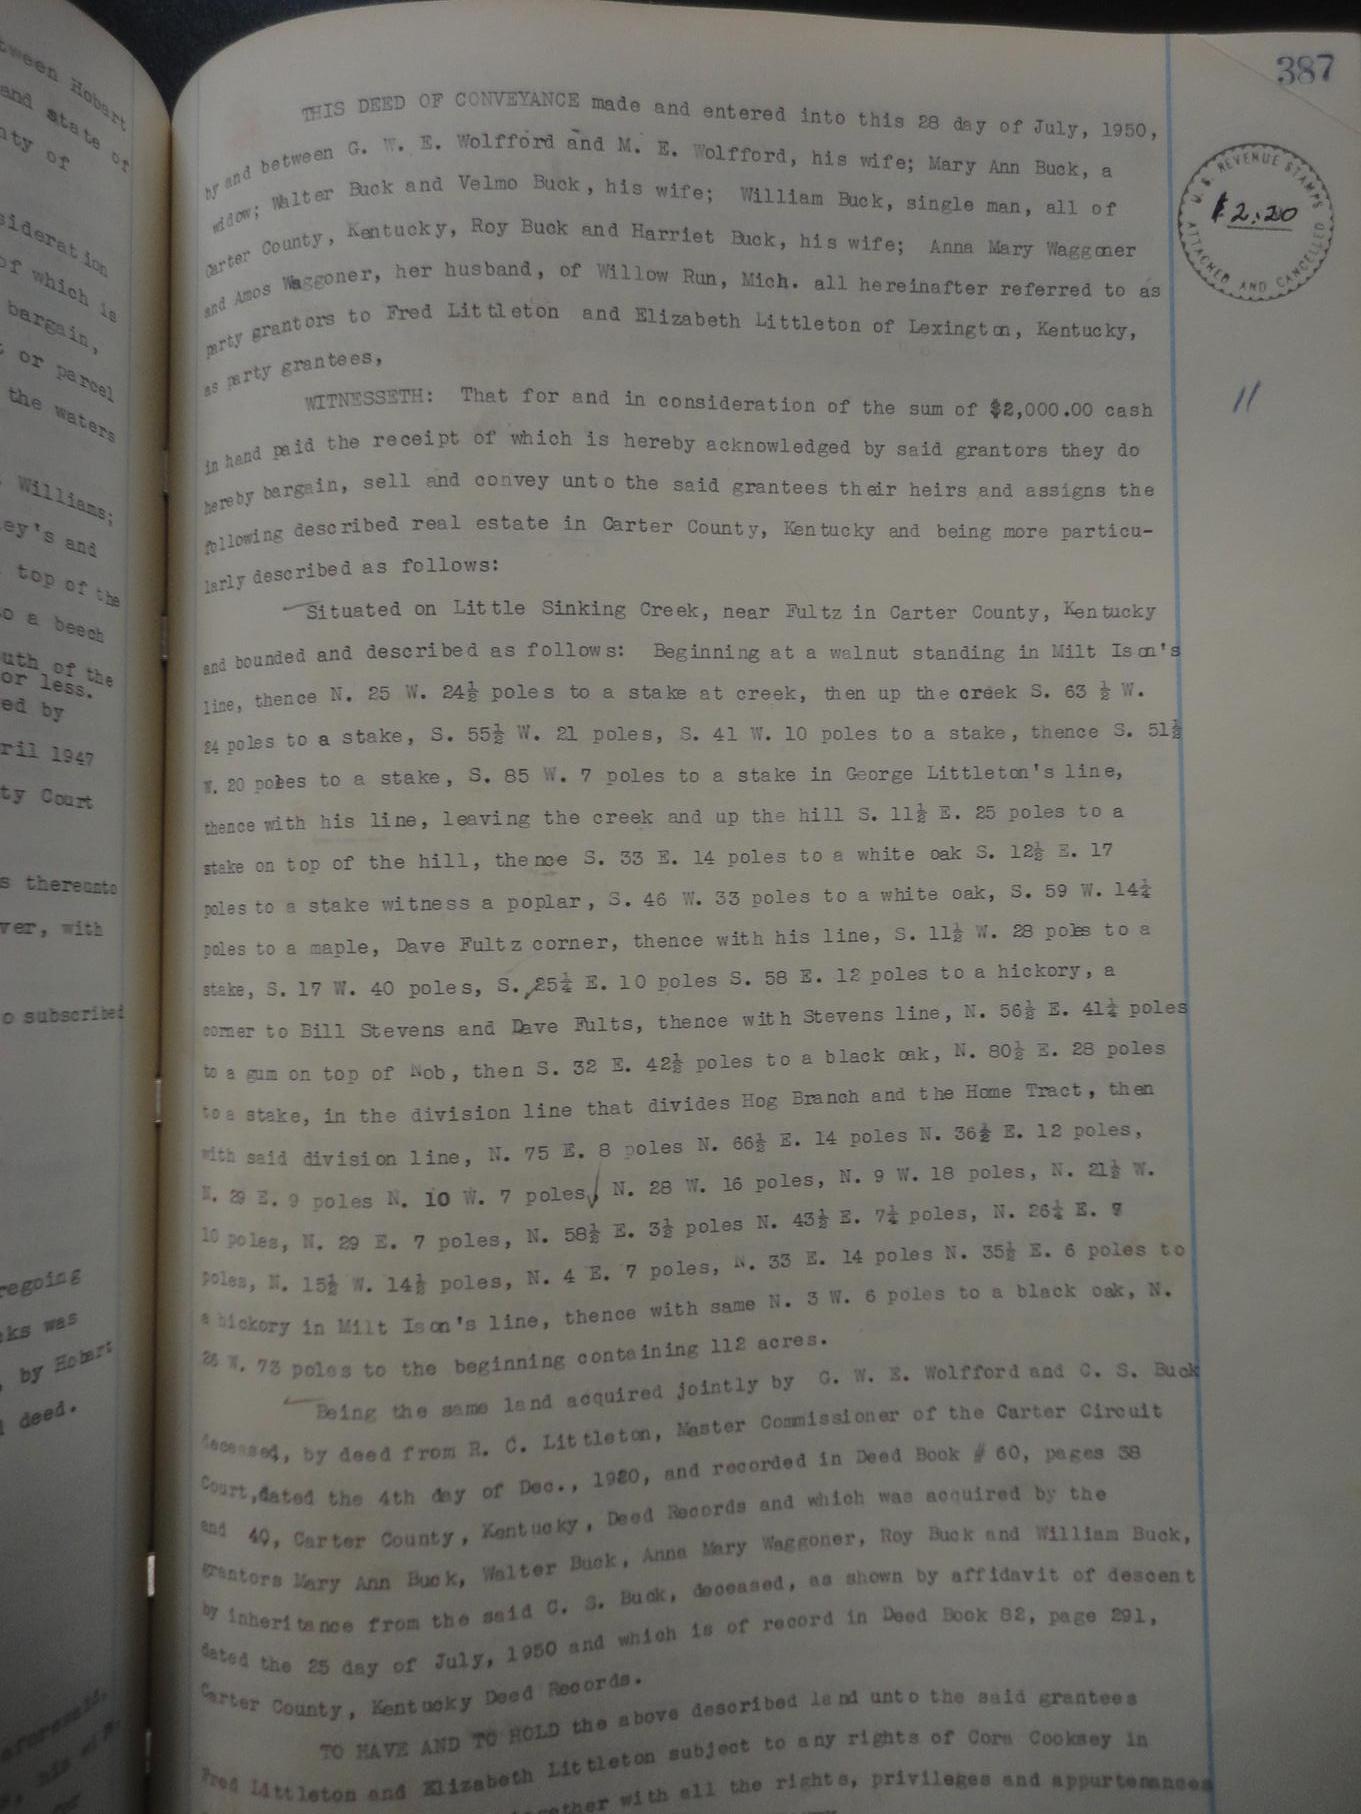 tween Hobart
and state of
nty of
sideration
of which is
bargain,
t or parcel
the waters
Williams;
ey's and
top of the
to a beech
uth of the
or less.
ed by
ril 1947
ty Court
s thereunto
ver, with
o subscribed
regoing
ks was
, by Hobart
d deed.
aforesaid,
387
U. S. REVENUE STAMPS
$2.20
ATTACHED AND CANCELLED
11
THIS DEED OF CONVEYANCE made and entered into this 28 day of July, 1950,
by and between G. W. E. Wolfford and M. E. Wolfford, his wife; Mary Ann Buck, a
widow; Walter Buck and Velmo Buck, his wife; William Buck, single man, all of
Carter County, Kentucky, Roy Buck and Harriet Buck, his wife; Anna Mary Waggoner
and Amos Waggoner, her husband, of Willow Run, Mich. all hereinafter referred to as
party grantors to Fred Littleton and Elizabeth Littleton of Lexington, Kentucky,
as party grantees,
WITNESSETH: That for and in consideration of the sum of $2,000.00 cash
in hand paid the receipt of which is hereby acknowledged by said grantors they do
hereby bargain, sell and convey unto the said grantees their heirs and assigns the
following described real estate in Carter County, Kentucky and being more particu-
larly described as follows:
Situated on Little Sinking Creek, near Fultz in Carter County, Kentucky
and bounded and described as follows: Beginning at a walnut standing in Milt Ison's
line, thence N. 25 W. 24½ poles to a stake at creek, then up the creek S. 63 ½ W.
24 poles to a stake, S. 55½ W. 21 poles, S. 41 W. 10 poles to a stake, thence S. 51½
W. 20 poles to a stake, S. 85 W. 7 poles to a stake in George Littleton's line,
thence with his line, leaving the creek and up the hill S. 11½ E. 25 poles to a
stake on top of the hill, thence S. 33 E. 14 poles to a white oak S. 12½ E. 17
poles to a stake witness a poplar, S. 46 W. 33 poles to a white oak, S. 59 W. 14¼
poles to a maple, Dave Fultz corner, thence with his line, S. 11½ W. 28 poles to a
stake, S. 17 W. 40 poles, S. 25¼ E. 10 poles S. 58 E. 12 poles to a hickory, a
corner to Bill Stevens and Dave Fults, thence with Stevens line, N. 56½ E. 41¼ poles
to a gum on top of Nob, then S. 32 E. 42½ poles to a black oak, N. 80½ E. 28 poles
to a stake, in the division line that divides Hog Branch and the Home Tract, then
with said division line, N. 75 E. 8 poles N. 66½ E. 14 poles N. 36½ E. 12 poles,
N. 29 E. 9 poles N. 10 W. 7 poles, N. 28 W. 16 poles, N. 9 W. 18 poles, N. 21½ W.
10 poles, N. 29 E. 7 poles, N. 58½ E. 3½ poles N. 43½ E. 7¼ poles, N. 26¼ E.
poles, N. 15½ W. 14½ poles, N. 4 E. 7 poles, N. 33 E. 14 poles N. 35½ E. 6 poles to
a hickory in Milt Ison's line, thence with same N. 3 W. 6 poles to a black oak, N.
W. 73 poles to the beginning containing 112 acres.
Being the same land acquired jointly by G. W. E. Wolfford and C. S. Buck
deceased, by deed from R. C. Littleton, Master Commissioner of the Carter Circuit
Court, dated the 4th day of Dec., 1920, and recorded in Deed Book # 60, pages 38
and 40, Carter County, Kentucky, Deed Records and which was acquired by the
grantors Mary Ann Buck, Walter Buck, Anna Mary Waggoner, Roy Buck and William Buck,
by inheritance from the said C. S. Buck, deceased, as shown by affidavit of descent
dated the 25 day of July, 1950 and which is of record in Deed Book 82, page 291,
Carter County, Kentucky Deed Records.
TO HAVE AND TO HOLD the above described land unto the said grantees
Fred Littleton and Elizabeth Littleton subject to any rights of Cora Cooksey in
together with all the rights, privileges and appurtenances